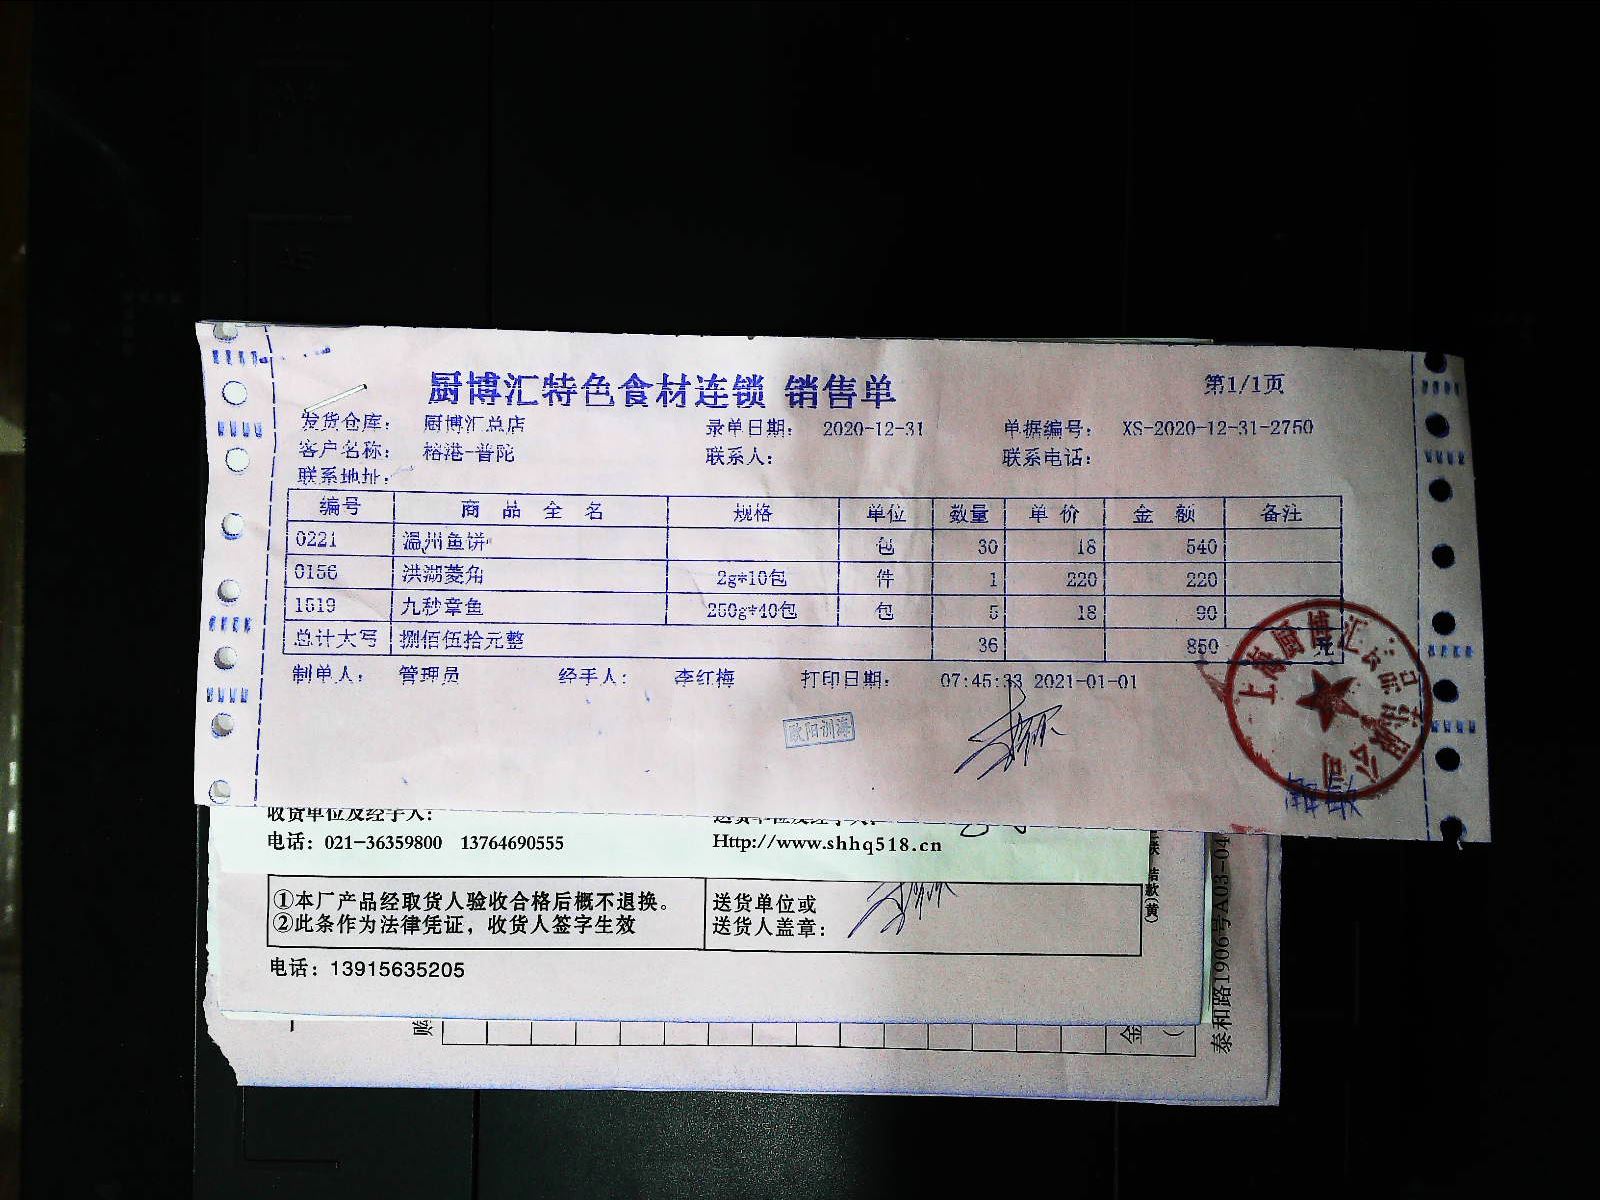 厨博汇特色食材连锁 销售单 第1/1页
发货仓库： 厨博汇总店 录单日期： 2020-12-31 单据编号： XS-2020-12-31-2750
客户名称： 榕港-普陀 联系人： 联系电话：
联系地址：
编号 商品全名 规格 单位 数量 单价 金额 备注
0221 温州鱼饼 包 30 18 540
0156 洪湖菱角 2g*10包 件 1 220 220
1519 九秒章鱼 250g*40包 包 5 18 90
总计大写 捌佰伍拾元整 36 850 元
制单人： 管理员 经手人： 李红梅 打印日期： 07:45:33 2021-01-01
欧阳训海
上海厨博汇
限公司
收货单位及经手人：
送货单位及经手人：
电话：021-36359800 13764690555 Http://www.shhq518.cn
①本厂产品经取货人验收合格后概不退换。
②此条作为法律凭证，收货人签字生效
送货单位或
送货人盖章：
电话：13915635205
联 结款(黄)
泰和路1906号A03-04
购
金